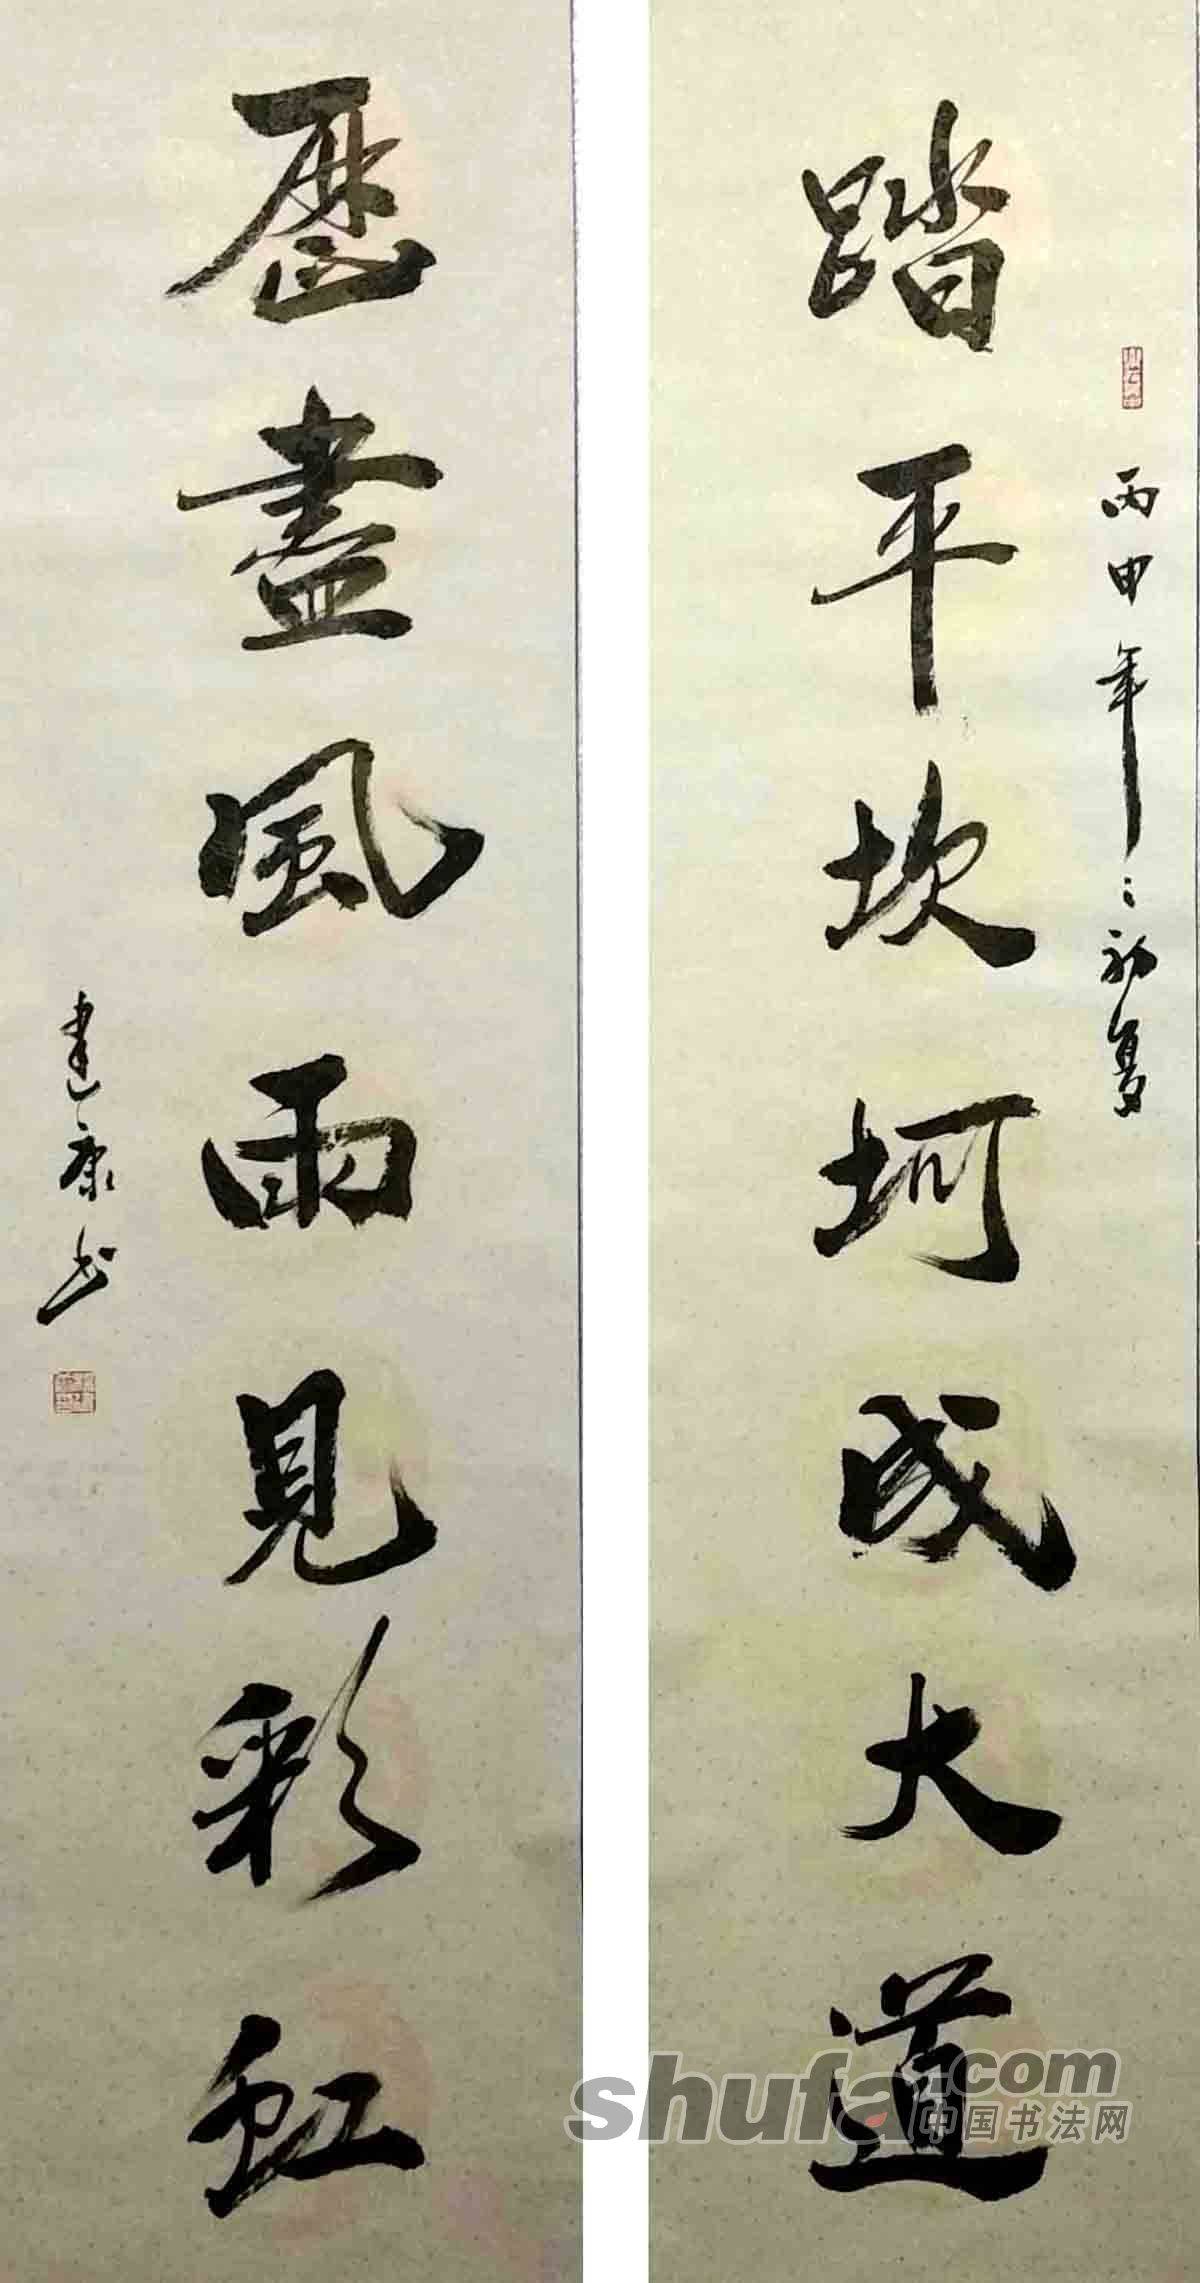 踏平坎坷成大道
丙申年之初夏
歷盡風雨見彩虹
建康书
shufa.com
中国书法网